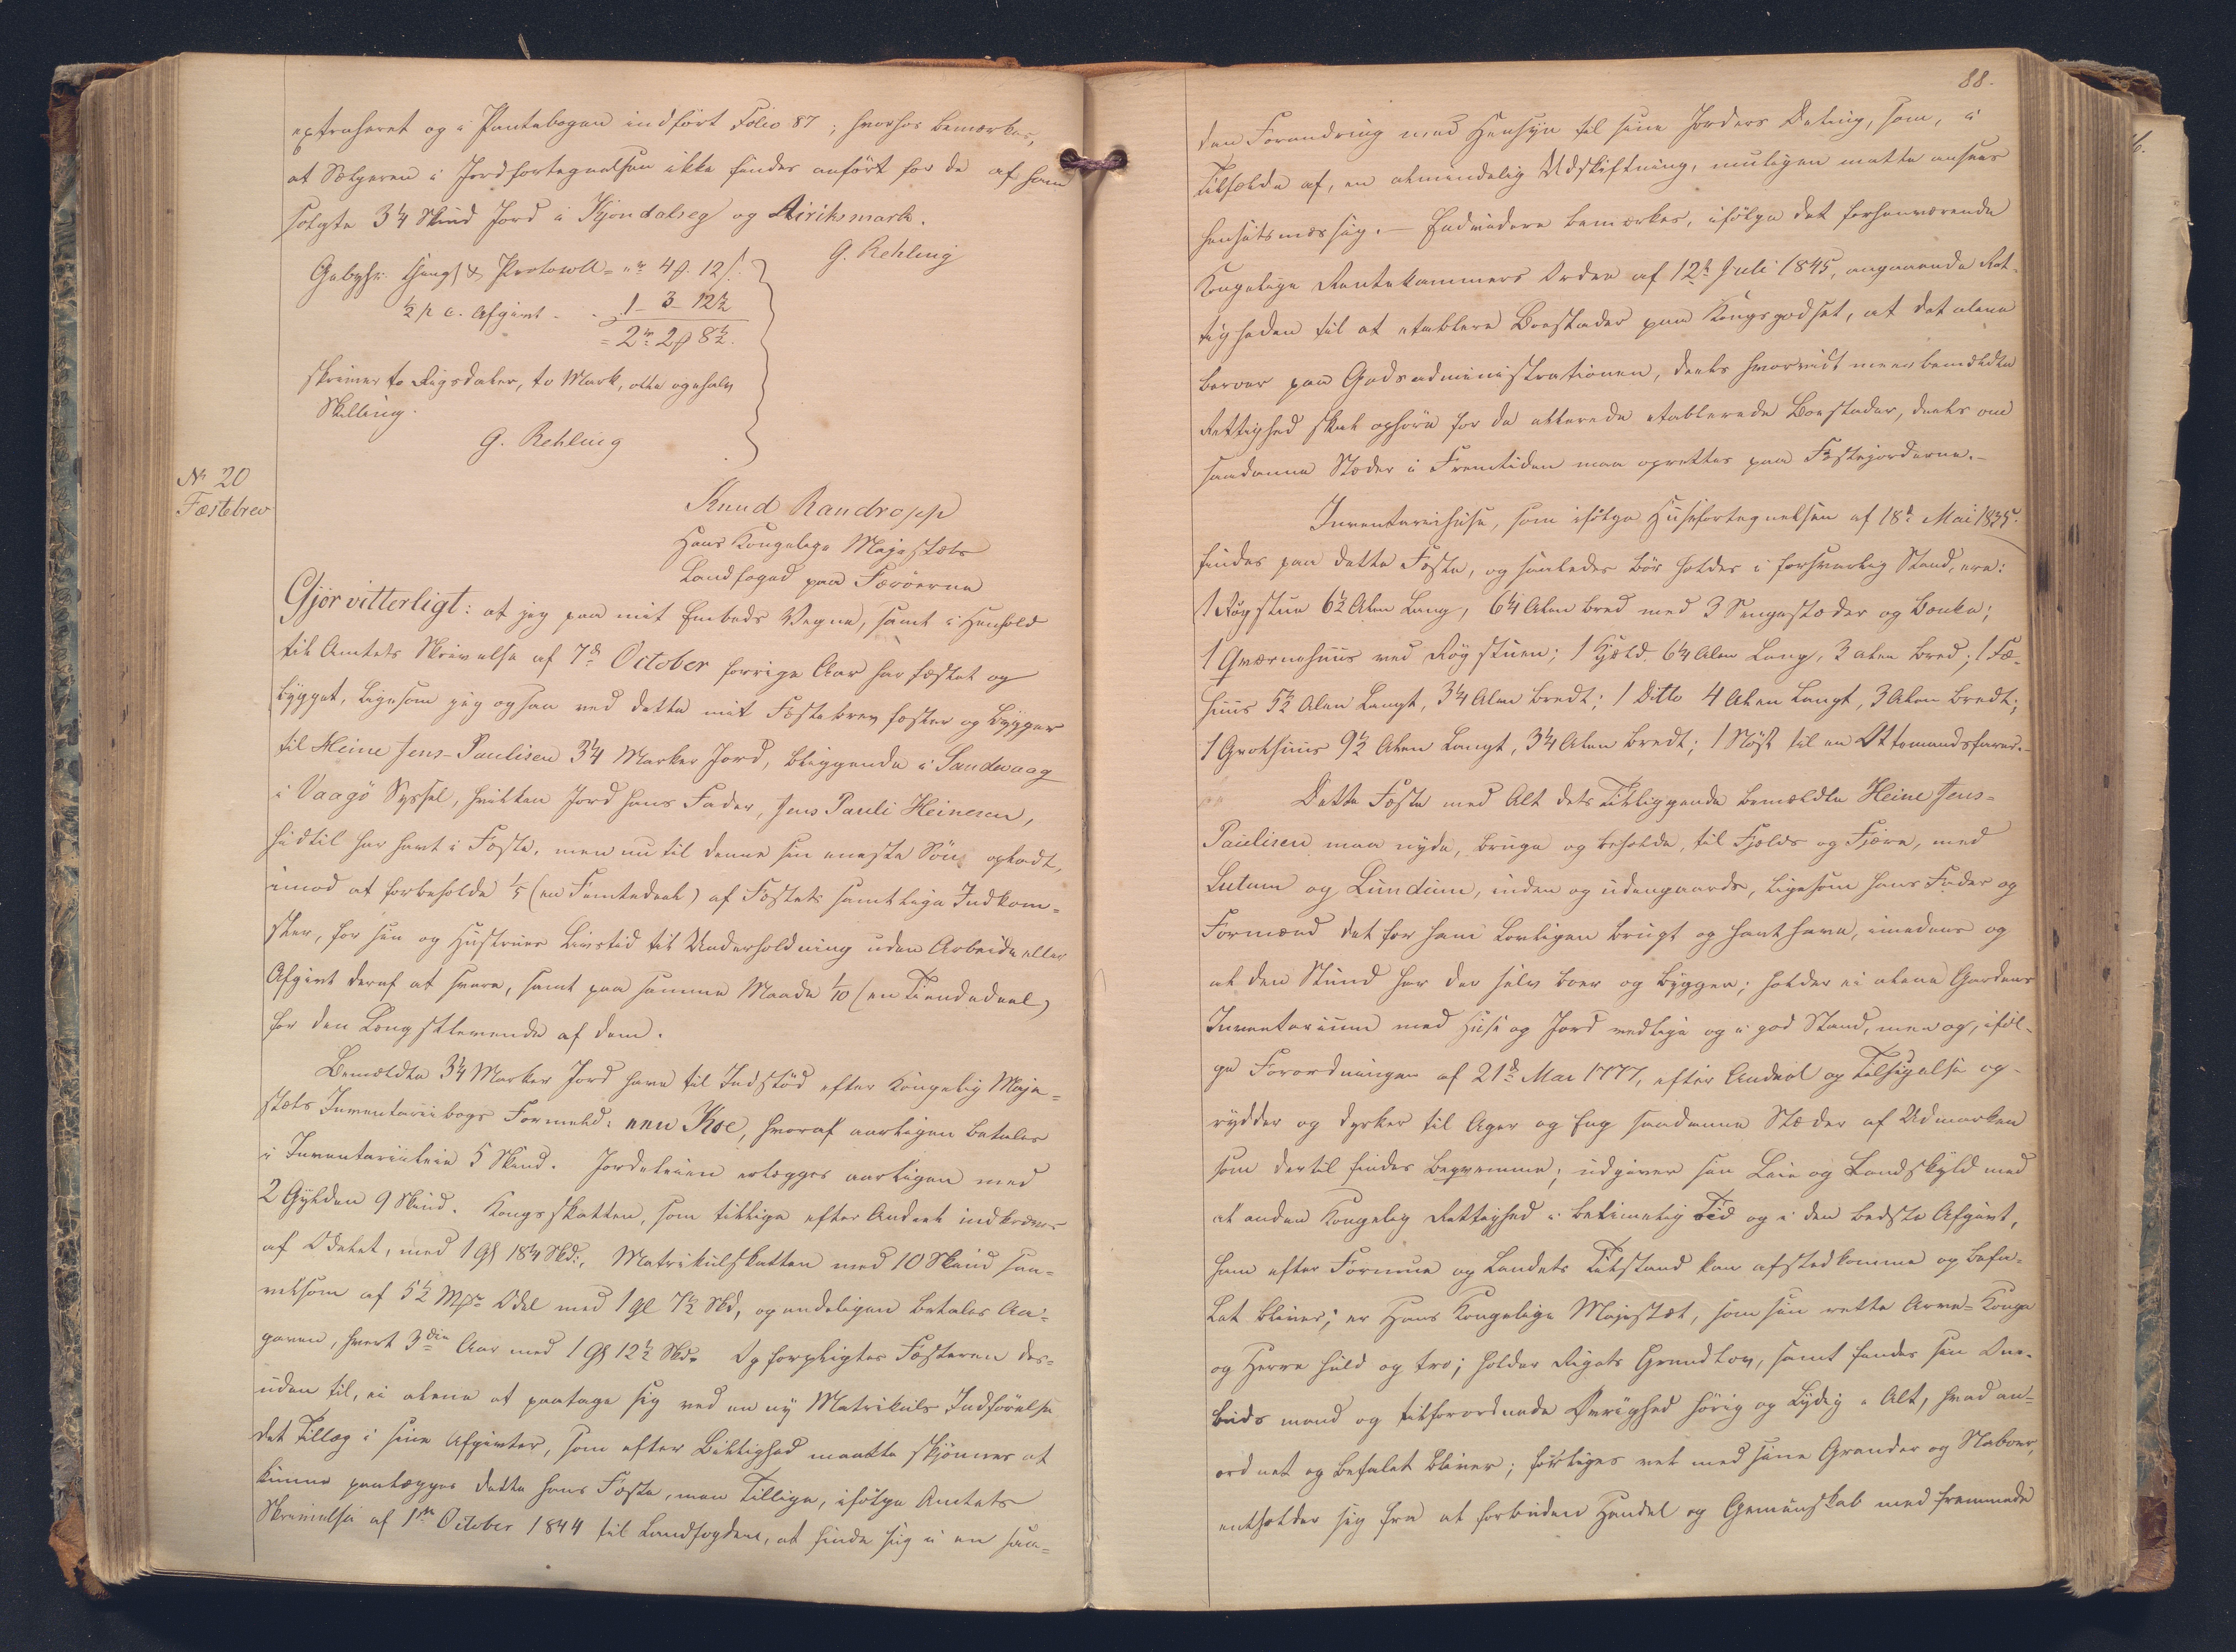 extraheret og i Pantebogen indført Folio 87; hvorhos bemærkes,
at Sælgeren i Jordfortegnelsen ikke findes anført for de af ham
solgte 3 1/4 Skind Jord i Kjøndalseg og Airiksmark.
G. Rehling
Gebyhr: Thingl. & Protocoll = " rd 4 ß. 12 /.
1/2 p c. Afgivt - - 1 - 3 - 12 1/2
= 2 rd 2 ß 8 1/2.
skriver to Rigsdaler, to Mark, otte og halv
Skilling.
G. Rehling
№ 20
Fæstebrev
Knud Randropp
Hans Kongelige Majestæts
Landfoged paa Færöerne
Gjør vitterligt: at jeg paa mit Embeds Vegne, samt i Henhold
til Amtets Skrivelse af 7de October forrige Aar har fæstet og
bygget, ligesom jeg ogsaa ved dette mit Fæstebrev fæster og bygger
til Heine Jens-Paulisen 3 1/4 Marker Jord, beliggende i Sandevaag
i Vaagö Syssel, hvilken Jord hans Fader, Jens Pauli Heinesen,
hidtil har havt i Fæste, men nu til denne sin eneste Søn opladt,
imod at forbeholde 1/5 (en Femtedeel) af Fæstets samtlige Indkom-
ster, for sin og Hustrues Livstid til Underholdning uden Arbeide eller
Afgivt deraf at svare, samt paa samme Maade 1/10 (en Tiendedeel)
for den Længstlevende af dem.
Bemældte 3 1/4 Marker Jord have til Indstød efter Kongelig Maje-
stæts Inventariibogs Formeld: een Koe, hvoraf aarligen betales
i Inventariileie 5 Skind. Jordeleien erlægges aarligen med
2 Gylden 9 Skind. Kongsskatten, som tillige efter Andeel indkræves
af Odelet, med 1 Gl 18 1/4 Skd:, Matrikulskatten med 10 Skind saa-
velsom af 5 1/2 Mkr Odel med 1 Gl 7 1/2 Skd, og endeligen betales An-
gaven, hvert 3die Aar med 1 Gl 12 1/2 Skd. Og forpligtes Fæsteren des-
uden til, ei alene at paatage sig ved en ny Matrikuls Indførelse
det Tillæg i sine Afgivter, som efter Billighed maatte skjønnes at
kunne paalægges dette hans Fæste, men tillige, ifølge Amtets
Skrivelse af 1ste October 1844 til Landfogden, at finde sig i en saa-
88.
dan Forandring med Hensyn til sine Jorders Deling, som, i
Tilfælde af, en almindelig Udskiftning, muligen maatte ansees
hensigtsmæssig. - Endvidere bemærkes, ifølge det forhenværende
Kongelige Rentekammers Ordre af 12te Juli 1845, angaaende Ret-
tigheden til at etablere Boestæder paa Kongsgodset, at det alene
beroer paa Godsadministrationen, deels hvorvidt meerbemeldte
Rettighed skal ophøre for de allerede etablerede Boestæder, deels om
saadanne Stæder i Fremtiden maa oprettes paa Fæstejorderne. -
Inventariihuse, som ifølge Huusfortegnelsen af 18de Mai 1835.
findes paa dette Fæste, og saaledes bør holdes i forsvarlig Stand, ere:
1 Røgstue 6 1/2 Alen lang, 6 1/4 Alen bred med 3 Sengestæder og Bænke;
1 Qværnehuus ved Røgstuen; 1 Hjeld 6 1/4 Alen lang, 3 Alen bred; 1 Fæ-
huus 5 1/2 Alen langt, 3 1/4 Alen bredt; 1 Ditto 4 Alen langt, 3 Alen bredt;
1 Grothuus 9 1/2 Alen langt, 3 1/4 Alen bredt; 1 Nøst til en Ottemandsfarer. -
Dette Fæste med Alt dets Tilliggende bemældte Heine Jens-
Paulisen maa nyde, bruge og beholde, til Fjelds og Fjære, med
Lutum og Lundum, inden og udengaards, ligesom hans Fader og
Formænd det før ham lovligen brugt og havt have, imedens og
al den Stund han der selv boer og bygger; holder ei alene Gaardens
Inventarium med Huse og Jord vedlige og i god Stand, men og, iføl-
ge Forordningen af 21de Mai 1777, efter Andeel og Tilsigelse op-
rydder og dyrker til Ager og Eng saadanne Stæder af Udmarken
som dertil findes beqvemme; udgiver sin Leie og Landskyld med
al anden Kongelig Rettighed i betimelig Tid og i den bedste Afgivt,
han efter Formue og Landets Tilstand kan afstedkomme og befa-
let bliver; er Hans Kongelige Majestæt, som sin rette Arve-Konge
og Herre huld og tro; holder Rigets Grundlov, samt findes sin Om-
budsmand og tilforordnede Øvrighed hørig og lydig i Alt, hvad an-
ordnet og befalet bliver; forliges vel med sine Grander og Naboer,
entholder sig fra al forbuden Handel og Gemeenskab med fremmede